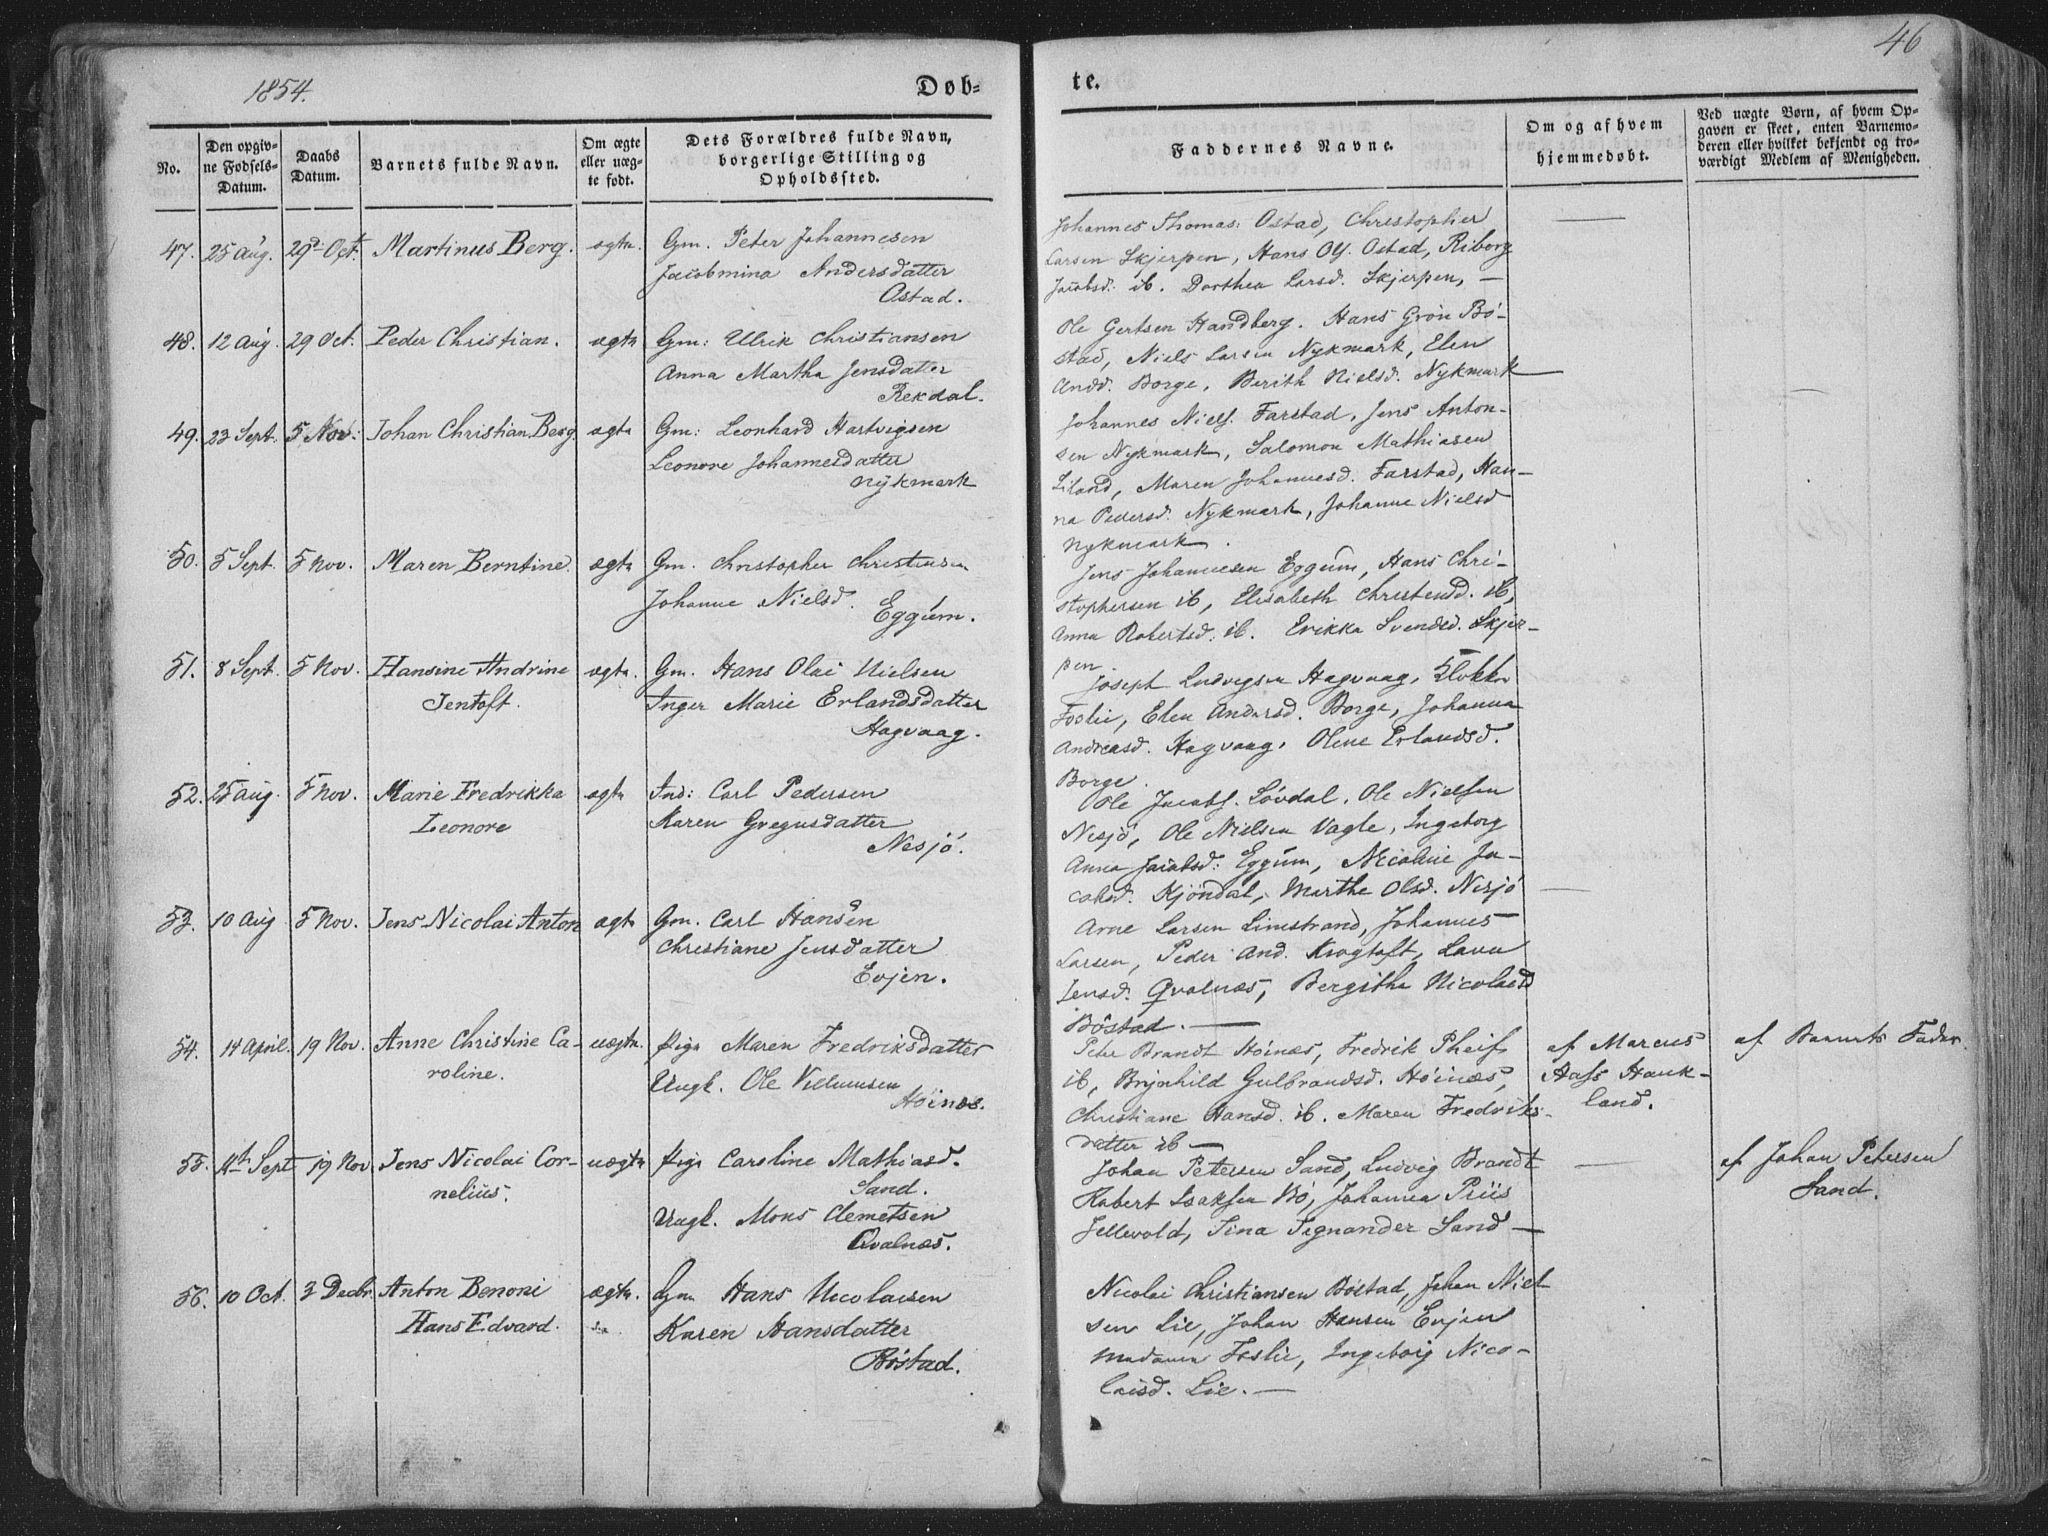 1854.
Døb-
te.
46
No.
Den opgiv-
ne Fødsels-
Datum.
Daabs
Datum.
Barnets fulde Navn.
Om ægte
eller uæg-
te født.
Dets Forældres fulde Navn,
borgerlige Stilling og
Opholdssted.
Faddernes Navne.
Om og af hvem
hjemmedøbt.
Ved uægte Børn, af hvem Op-
gaven er skeet, enten Barnemo-
deren eller hvilket bekjendt og tro-
værdigt Medlem af Menigheden.
47. 25 Aug. 29d Oct. Martinus Berg. ægte. Gm. Peter Johannesen
Jacobmina Andersdatter
Ostad.
Johannes Thomas: Ostad, Christopher
Larsen Skjerpen, Hans Ol. Ostad, Riborg
Jacobsd: ib. Dorthea Larsd. Skjerpen, —
48. 12 Aug. 29 Oct. Peder Christian. ægte Gm: Ulrik Christiansen
Anna Martha Jensdatter
Rekdal.
Ole Gertsen Handberg. Hans Grön Bö-
stad, Niels Larsen Nykmark, Elen
Andd. Borge, Berith Nielsd. Nykmark
49. 23 Sept. 5 Nov: Johan Christian Berg. ægte Gm: Leonhard Hartvigsen
Leonore Johannesdatter
Nykmark
Johannes Niels. Farstad, Jens Anton-
sen Nykmark, Salomon Mathiasen
Liland, Maren Johannesd. Farstad, Han-
na Pedersd. Nykmark, Johanne Nielsd
Nykmark.
50. 5 Sept. 5 Nov. Maren Berntine. ægte Gm. Christopher Christensen
Johanne Nielsd.
Eggum.
Jens Johannesen Eggum, Hans Chri-
stophersen ib, Elisabeth Christend. ib,
Anna Robertsd. ib. Erikka Svendsd. Skjer-
pen.
51. 8 Sept. 5 Nov. Hansine Andrine
Jentoft.
ægte. Gm. Hans Olai Nielsen
Inger Marie Erlandsdatter
Hagvaag.
Joseph Ludvigsen Hagvaag, Klokker
Foslie, Elen Andersd. Borge, Johanna
Andreasd. Hagvaag, Oline Erlandsd.
Borge.
52. 25 Aug. 5 Nov. Marie Fredrikka
Leonore
ægte Ind: Carl Pedersen
Karen Gregusdatter
Nesjö.
Ole Jacobs. Lövdal, Ole Nielsen
Nesjö, Ole Nielsen Vagle, Ingeborg
Anna Jacobsd: Eggum, Nicoline Ja-
cobsd. Kjöndal, Marthe Olsd. Nesjö —
53. 10 Aug 5 Nov. Jens Nicolai Anton ægte Gm. Carl Hansen
Christiane Jensdatter
Evjen.
Arne Larsen Limstrand, Johannes
Larsen, Peder And. Krogtoft, Lava
Jensd. Qvalnæs, Bergitha Nicolaisd
Böstad. —
54. 14 April. 19 Nov. Anne Christine Ca-
roline.
uægte. Pige Maren Fredriksdatter
Ungk. Ole Villumsen
Höinæs.
Peter Brandt Höinæs, Fredrik Pheif
ib, Brynhild Gulbrandsd. Höinæs,
Christiane Hansd. ib. Maren Fredriks-
datter ib —
af Marcus
Aass Hauk-
land.
af Barnets Fader
55. 14 Sept 19 Nov Jens Nicolai Cor-
nelius.
uægte Pige Caroline Mathiasd.
Sand.
Ungk. Mons Clemetsen
Qvalnæs.
Johan Petersen Sand, Ludvig Brandt
Robert Isaksen Bö, Johanna Priis
Jellevold, Sina Signander Sand —
af Johan Petersen
Sand.
56. 10 Oct. 3 Decbr. Anton Benoni
Hans Edvard.
ægte. Gm Hans Nicolaisen
Karen Hansdatter
Böstad.
Nicolai Christiansen Böstad, Johan Niel-
sen Lie, Johan Hansen Evjen
Madame Foslie, Ingeborg Nico-
laisd. Lie. —